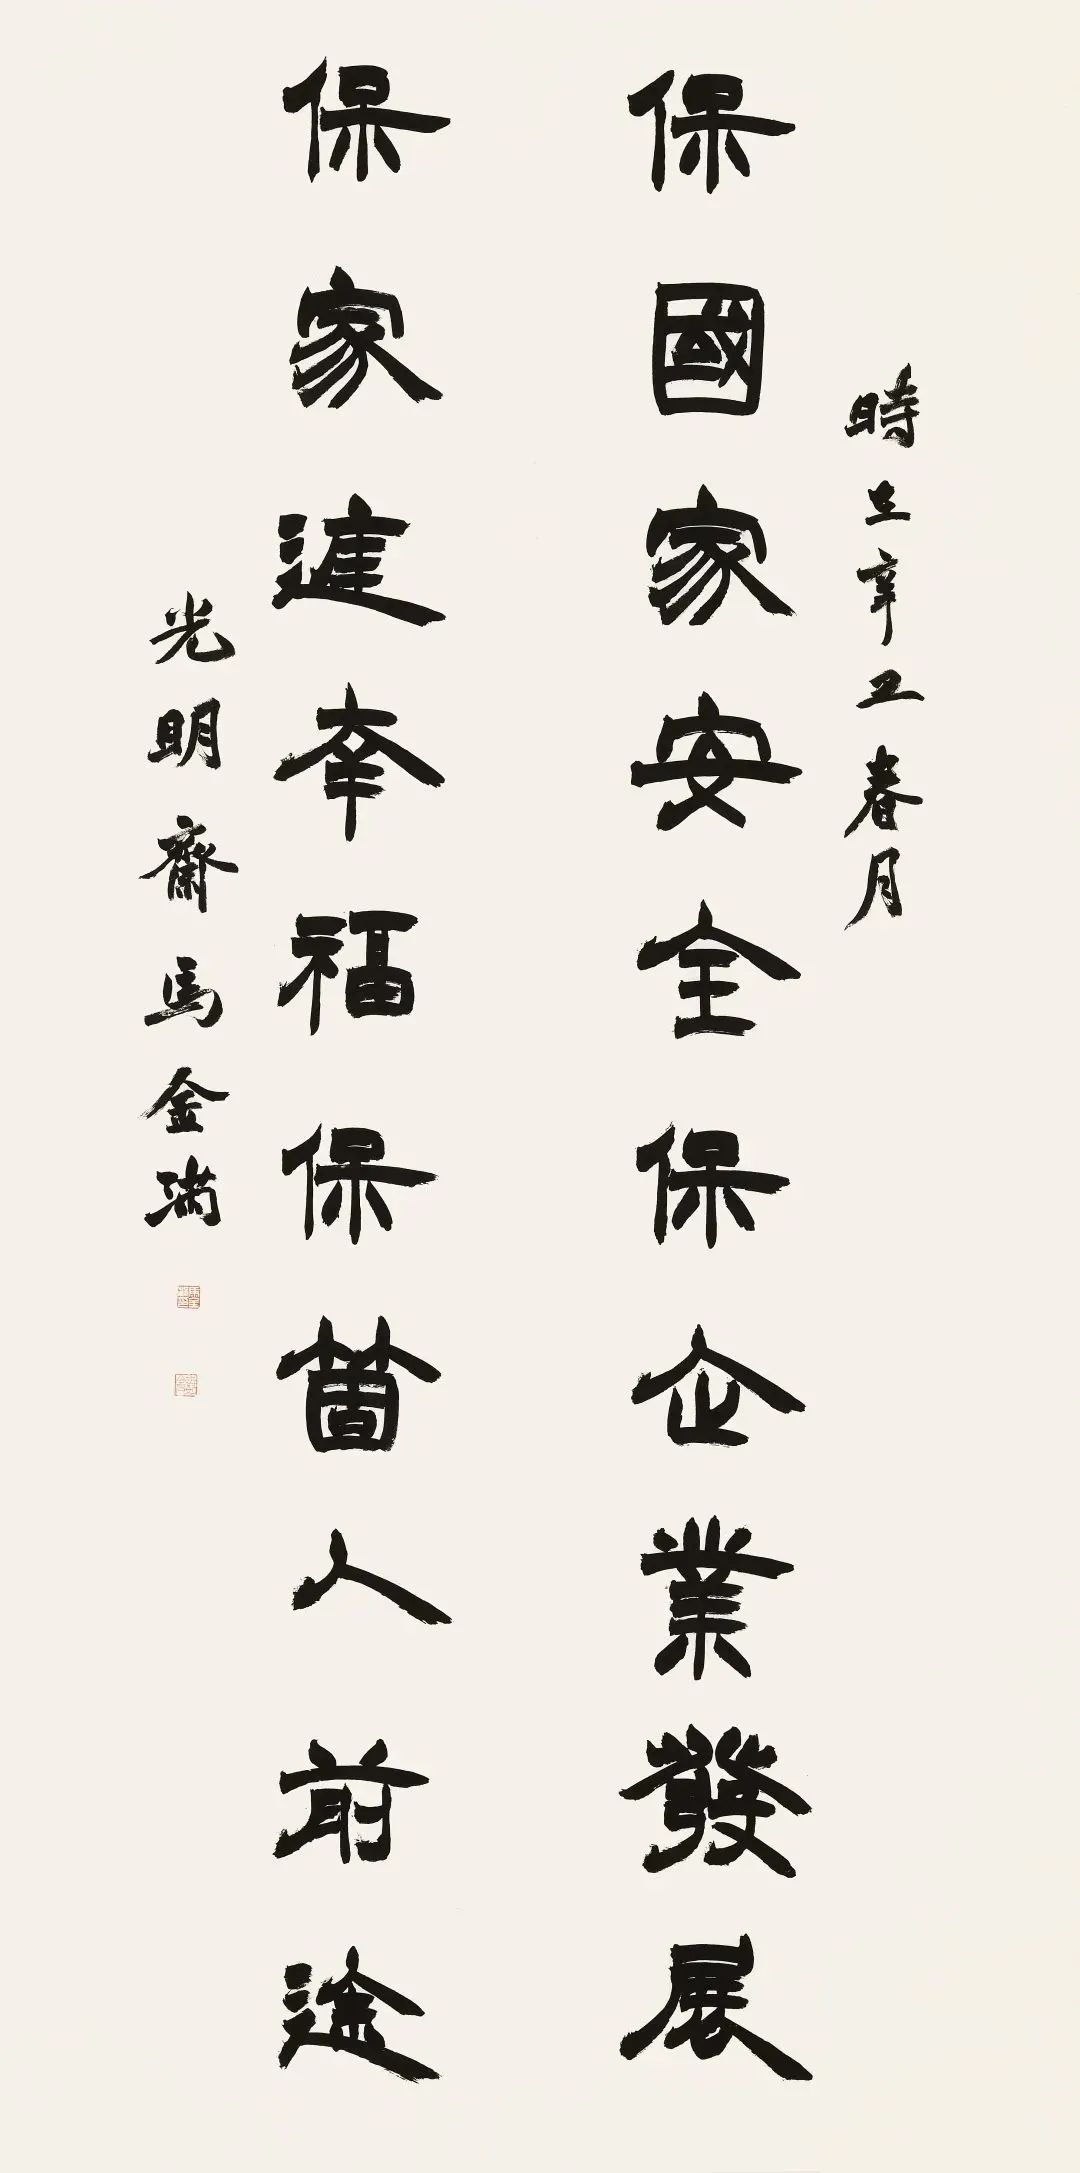 時在辛丑春月
保國家安全保企業發展
保家進幸福保箇人前途
光明齋馬金满